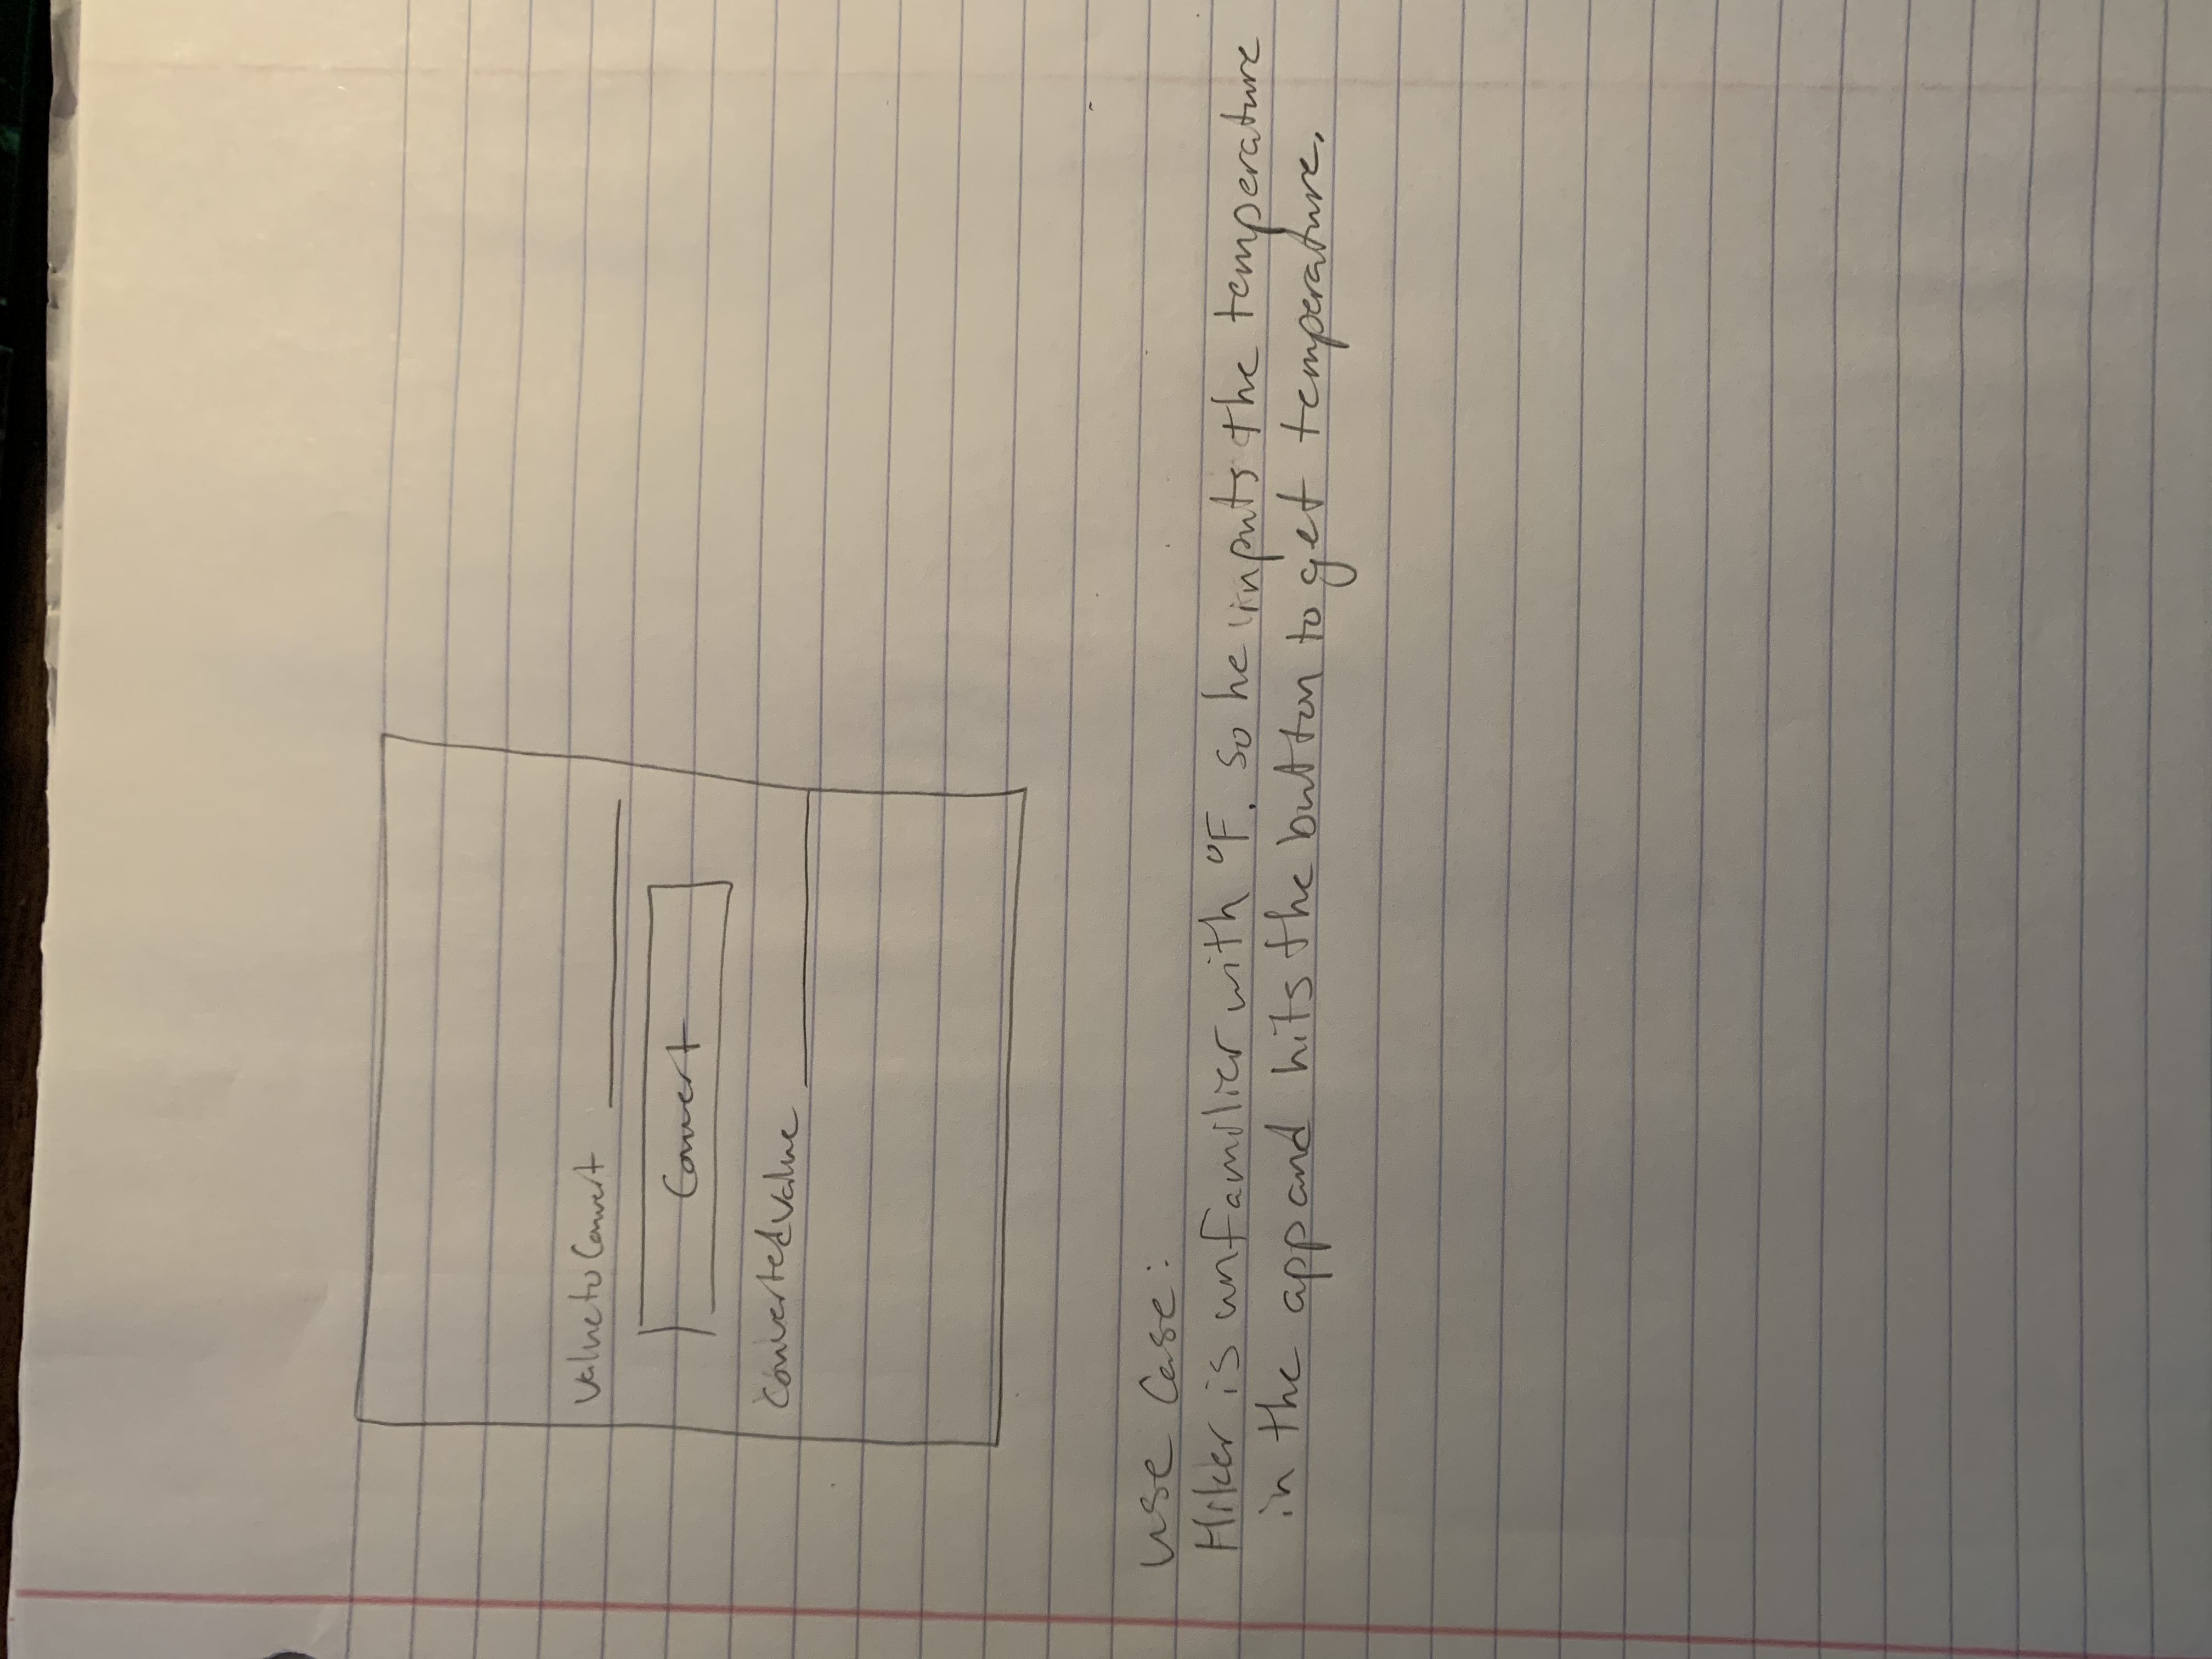 Value to Convert
Convert
Converted Value
use case:
Hiker is unfamilier with °F. So he inputs the temperature
in the app and hits the button to get temperature.